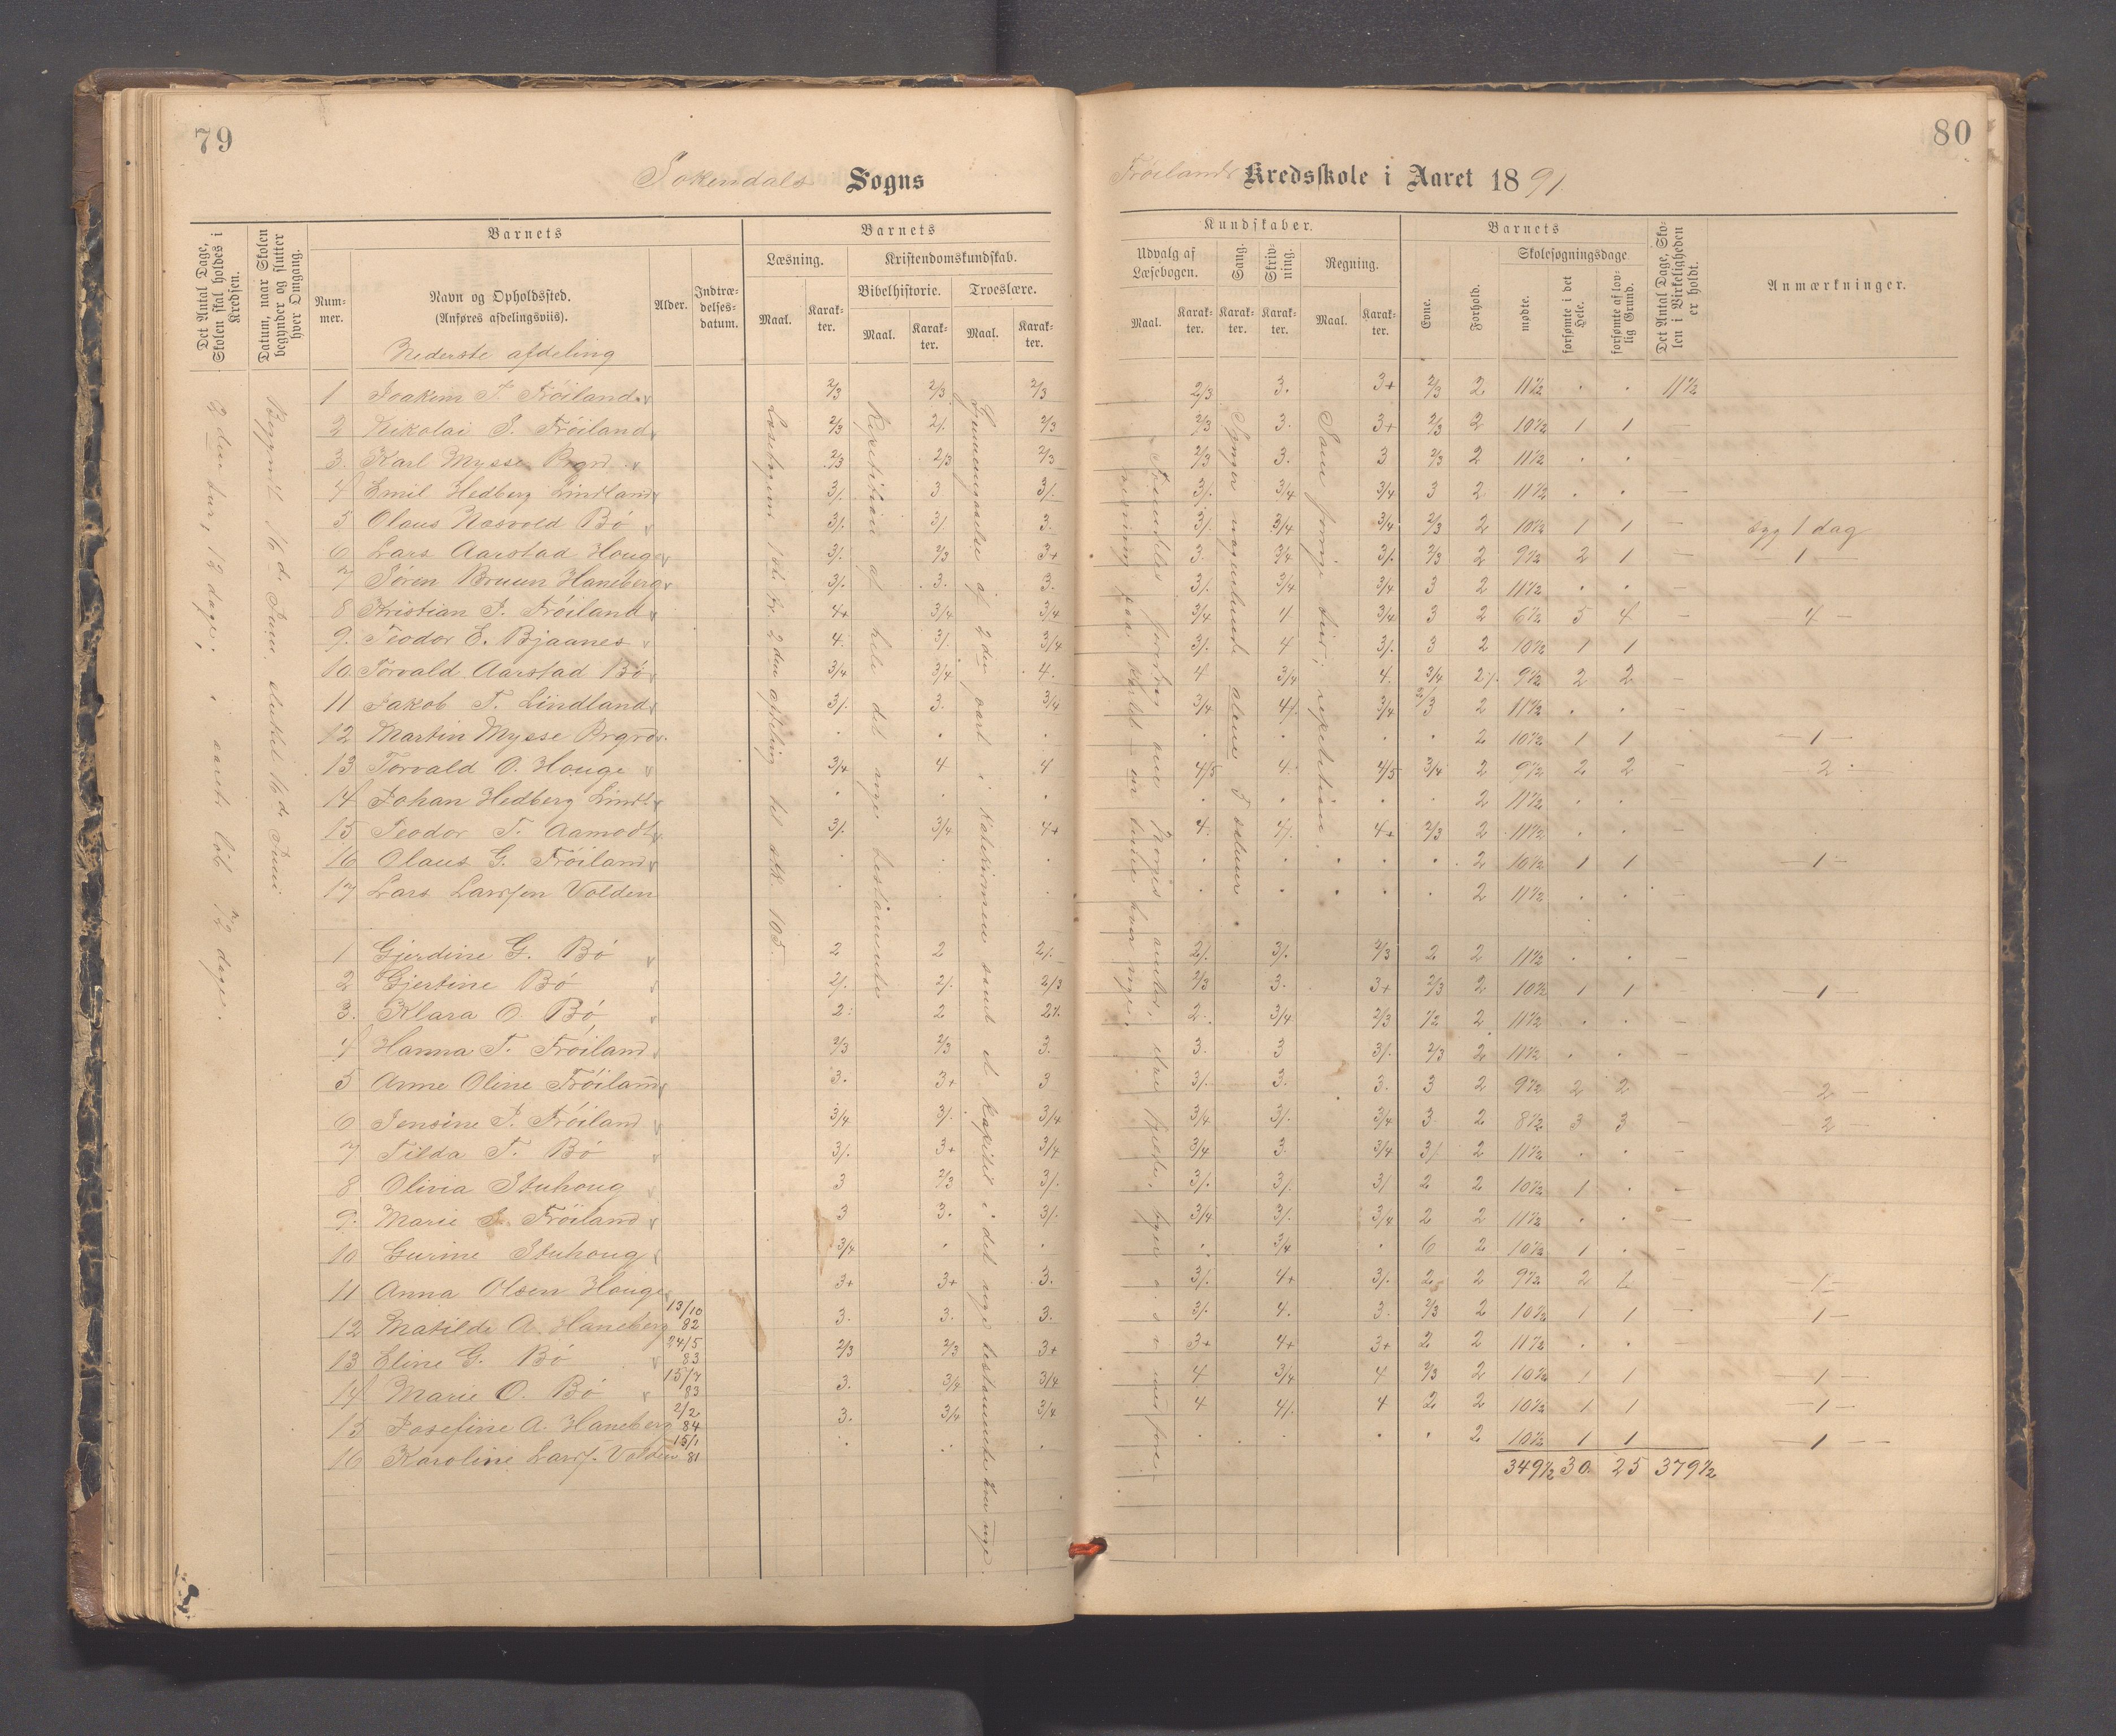 79
Sokendals Sogns
Det Antal Dage, Skolen skal holdes i Kredsen.
Datum, naar Skolen begynder og slutter hver Omgang.
Barnets
Num-mer.
Navn og Opholdssted.
(Anføres afdelingsviis).
Alder.
Indtræ-delses-datum.
Barnets
Læsning.
Kristendomskundskab.
Bibelhistorie.
Troeslære.
Maal.
Karak-ter.
Maal.
Karak-ter.
Maal.
Karak-ter.
Nederste afdeling
1 Joakim T. Fröiland 2/3 2/3 2/3
2 Nikolai S. Fröiland 2/3 2/. 2/3
3. Karl Mysse Prgrd. 2/3 2/3 2/3
4 Emil Hedberg Lindland 3/. 3 3/.
5 Olaus Næsvold Bö 3/. 3/. 3.
6 Lars Aarstad Houge 3/. 2/3 3+
7 Sören Bruun Haneberg 3/. 3. 3.
8 Kristian J. Fröiland 4+ 3/4 3/4
9. Teodor E. Bjaanes 4. 3/. 3/4
10. Torvald Aarstad Bö 3/4 3/4 4.
11 Jakob T. Lindland 3/. 3. 3/4
12 Martin Mysse Prgrd. . . .
13 Torvald O. Houge 3/4 4 4
14 Johan Hedberg Lindl. . . .
15 Teodor T. Aamodt 3/. 3/4 4+
16 Olaus G. Fröiland . . .
17 Lars Larsen Volden . . .
1 Gjerdine G. Bö 2 2 2/.
2 Gjertine Bö 2/. 2/. 2/3
3. Klara O. Bö 2. 2 2/.
4 Hanna T. Fröiland 2/3 2/3 3.
5 Anne Oline Fröiland 3. 3+ 3
6 Jensine J. Fröiland 3/4 3/. 3/4
7 Tilda T. Bö 3/. 3+ 3/4
8 Olivia Stuhoug 3 2/3 3/.
9. Marie S. Fröiland 3 3. 3/.
10 Gurine Stuhoug 3/4 . .
11 Anna Olsen Houge 3+ 3+ 3.
12 Matilde A. Haneberg 13/10 82 3. 3. 3.
13 Eline G. Bö 24/5 83 2/3 2/3 3+
14 Marie O. Bö 15/7 83 3. 3/4 3/4
15 Josefine A. Haneberg 2/2 84 3. 3/4 3/4
16 Karoline Lars. Volden 15/1 81 . . .
2den tur, 12 dage; i aarets löb 72 dage.
Begyndt 16de Juni sluttet 16de Juni
Læsebogen 1ste tr. 2den afdeling til stk. 105.
Repetition af hele det nye testamente
Gjennemgaaelse af 2den part i Katekismen samt et kapitel i det nye testamente hver uge
80
Fröilands Kredsskole i Aaret 1891
Kundskaber.
Udvalg af Læsebogen.
Sang.
Skriv-ning.
Regning.
Maal.
Karak-ter.
Karak-ter.
Karak-ter.
Maal.
Karak-ter.
Barnets
Evne.
Forhold.
Skolesøgningsdage.
mødte.
forsømte i det Hele.
forsømte af lov-lig Grund.
Det Antal Dage, Sko-len i Virkeligheden er holdt.
Anmærkninger.
2/3 3. 3+ 2/3 2 11 1/2 . . 11 1/2
2/3 3. 3+ 2/3 2 10 1/2 1 1 —
2/3 3. 3 2/3 2 11 1/2 . .
3/. 3/4 3/4 3 2 11 1/2 . . —
3/. 3/4 3/4 2/3 2 10 1/2 1 1 — syg 1 dag
3. 3/4 3/. 2/3 2 9 1/2 2 1 — 1 —
3/. 3/4 3/4 3 2 11 1/2 . . —
3/4 4 3/4 3 2 6 1/2 5 4 — 4 —
3/. 4 3/. 3 2 10 1/2 1 1
4 3/4 4. 3/4 2/. 9 1/2 2 2 —
3/4 4/. 3/4 3 2 11 1/2 . . —
. . . . 2 10 1/2 1 1 — 1 —
4/5 4. 4/5 3/4 2 9 1/2 2 2 — 2 —
. . . . 2 11 1/2 . .
4. 4/. 4+ 2/3 2 11 1/2 . .
. . . . 2 10 1/2 1 1 — 1 —
. . . . 2 11 1/2 . . —
2/. 3/. 2/3 2 2 11 1/2 . . —
2/3 3. 3+ 2/3 2 10 1/2 1 1 — 1 —
2. 3/4 2/3 1/2 2 11 1/2 . . —
3. 3 3/. 2/3 2 11 1/2 . . —
3/. 3. 3. 3 2 9 1/2 2 2 — 2 —
3/4 3/. 3/4 3 2 8 1/2 3 3 — 2 —
3/4 3 3/4 3/ 2 11 1/2 . . —
3/. 3/. 3/ 2 2 10 1/2 1 . —
3/4 3/. 3/4 2 2 11 1/2 . . —
. 3/4 . 6 2 10 1/2 1 . —
3/. 4+ 3/. 2 2 9 1/2 2 1 — 1 —
3/. 4. 3. 2/3 2 10 1/2 1 1 — 1 —
3+ 4+ 3+ 2 2 11 1/2 . . —
4 3/4 4 2/3 2 10 1/2 1 1 — 1 —
4 4/. 4 2 2 10 1/2 1 1 — 1 —
. . . . 2 10 1/2 1 1 — 1 —
349 1/2 30. 25 379 1/2
Synger nogenlunde alene 7 salmer.
Som forrige tur; repetition.